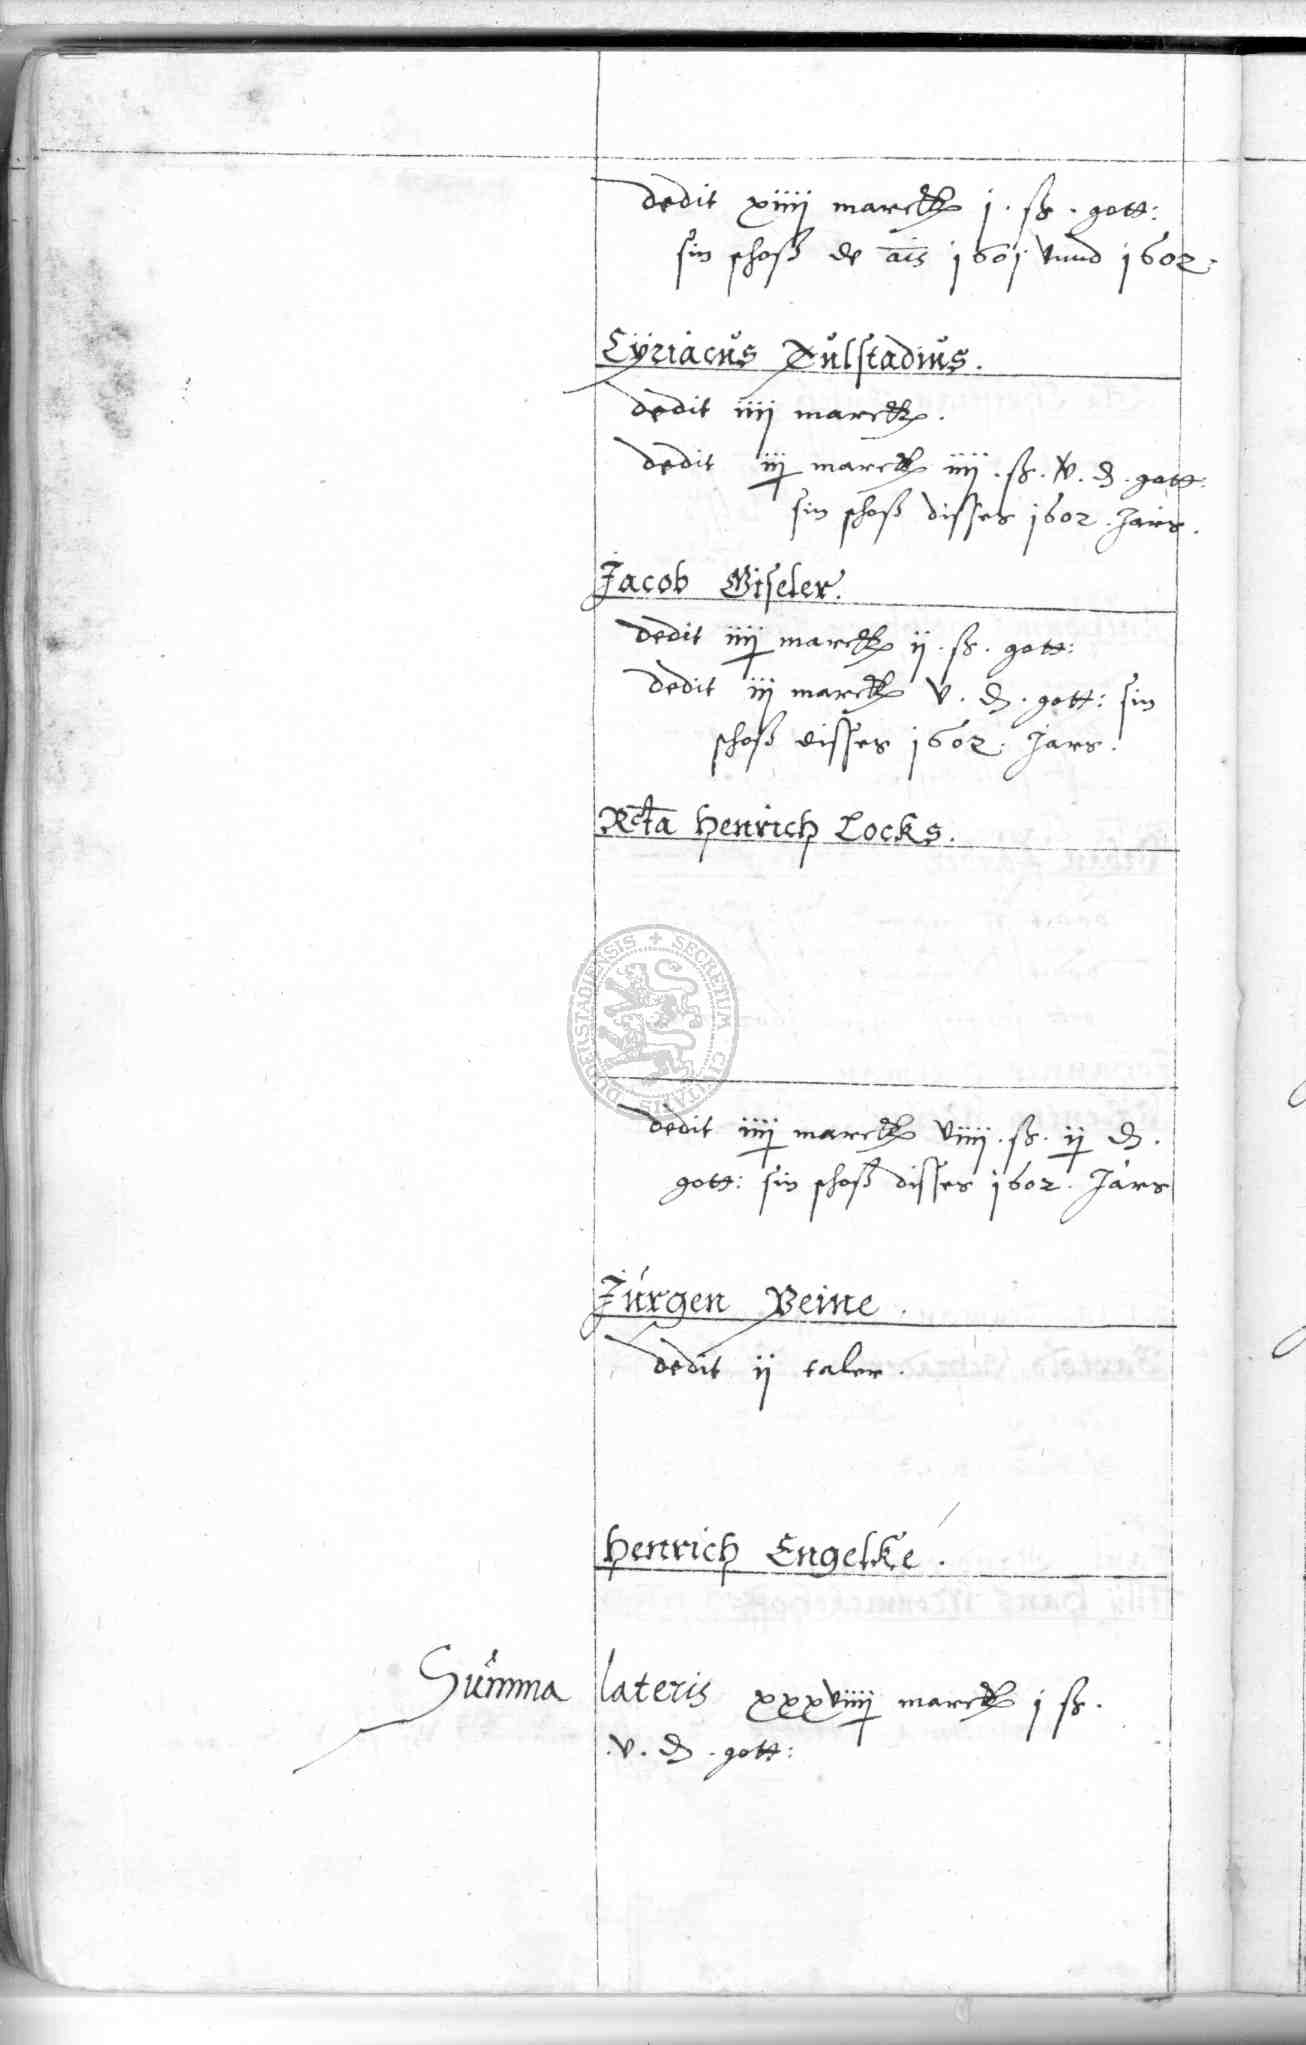 dedit xiiij marck j . ß . gott:
sin schoß de ais 1601 vnnd 1602.
Cÿriacus Tulstadius.
dedit iiij marck.
dedit iij marck iiij . ß . v . d . gott:
sin schoß disses 1602 . Jars.
Jacob Giseler.
dedit iiij marck ij . ß . gott:
dedit iij marck v . d . gott: sin
schoß disses 1602. Jars.
Rcta Henrich Locks.
SECRETUM CIVITATIS DUDERSTADIENSIS
dedit iiij marck viiij . ß . ij d .
gott: sin schoß disses 1602. Jars
Jürgen Beine .
dedit ij taler .
Henrich Engelke .
Summa lateris xxxviiij marck j ß .
. v . d . gott: